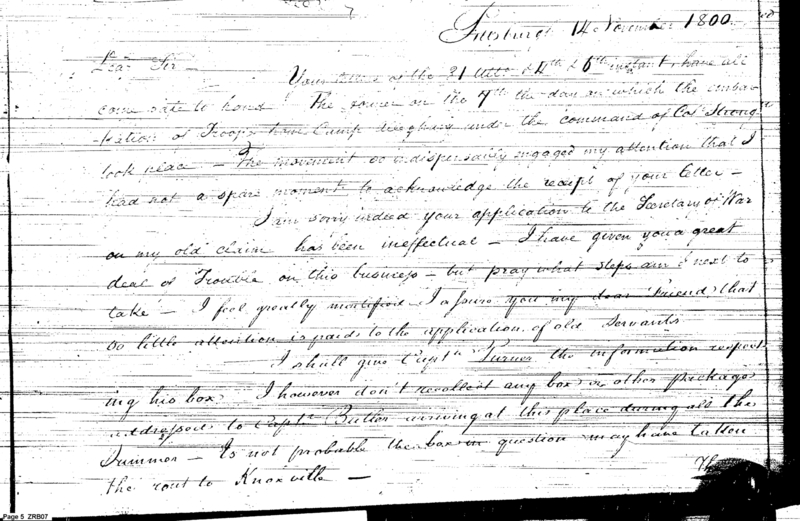 Pittsburgh 14 November 1800.
Dear Sir
Your letters of the 31 Ulto & 4th & 6th instant, have all
come safe to hand. The former on the 7th the day on which the embar-
-kation of Troops from Camp under the command of Colo Strong
took place — The movement so indispensably engaged my attention that I
had not a spare moment to acknowledge the receipt of your letter —
I am sorry indeed your application to the Secretary of War
on my old claim has been ineffectual — I have given you a great
deal of Trouble on this business — but pray what steps am I next to
take — I feel greatly mortified I assure you my dear Friend, that
so little attention is paid to the application of old Servants
I shall give Captn Turner the information respect-
ing his box. I however don't recollect any box or other package
addressed to Captn Butler arriving at this place during all the
Summer — Is not probable the box in question may have taken
the rout to Knoxville —
Page 5 ZRB07